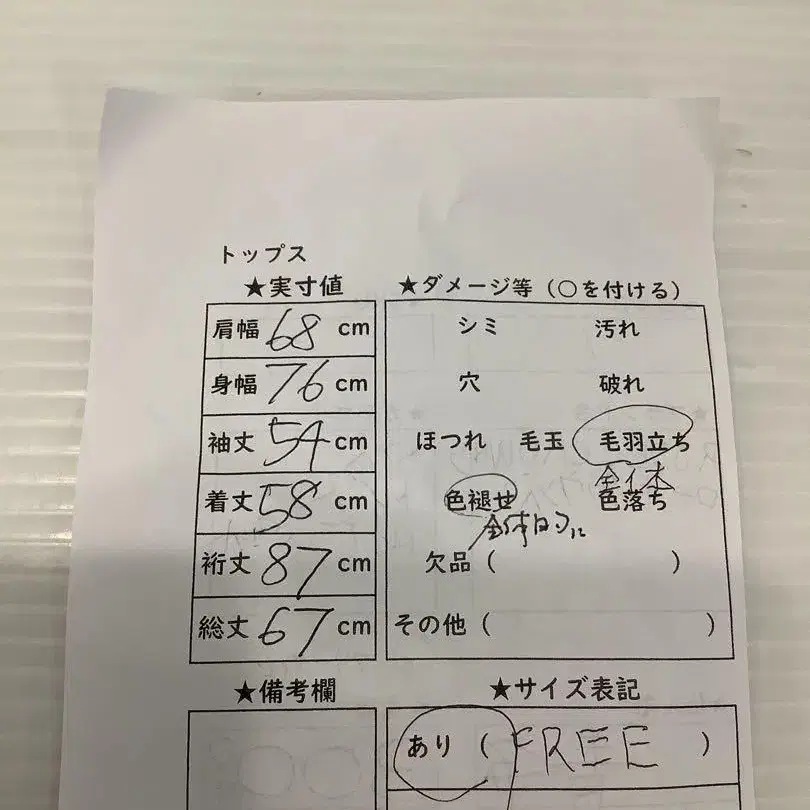 トップス
★実寸値
肩幅 68 cm
身幅 76 cm
袖丈 54 cm
着丈 58 cm
裄丈 87 cm
総丈 67 cm
★ダメージ等（○を付ける）
シミ 汚れ
穴 破れ
ほつれ 毛玉 毛羽立ち
全体
色褪せ 色落ち
全体的に
欠品（ ）
その他（ ）
★備考欄
★サイズ表記
あり（FREE）